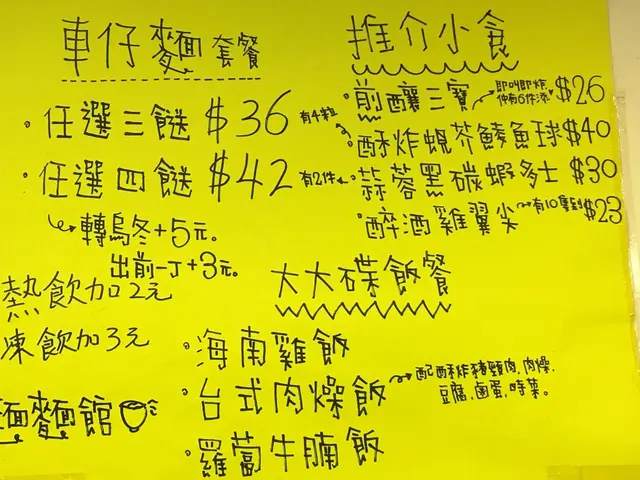 車仔麵套餐
任選三餸 $36
任選四餸 $42
轉烏冬+5元。
出前一丁+3元。
熱飲加2元
凍飲加3元
麵麵館
推介小食
煎釀三寶 即叫即炸, 仲有6件添 $26
有4粒 酥炸蜆芥鯪魚球 $40
有2件 蒜蓉黑碳蝦多士 $30
醉酒雞翼尖 有10隻到 $23
大大碟飯餐
海南雞飯
台式肉燥飯
配酥炸豬頸肉,肉燥,
豆腐,鹵蛋,時菜。
羅蔔牛腩飯